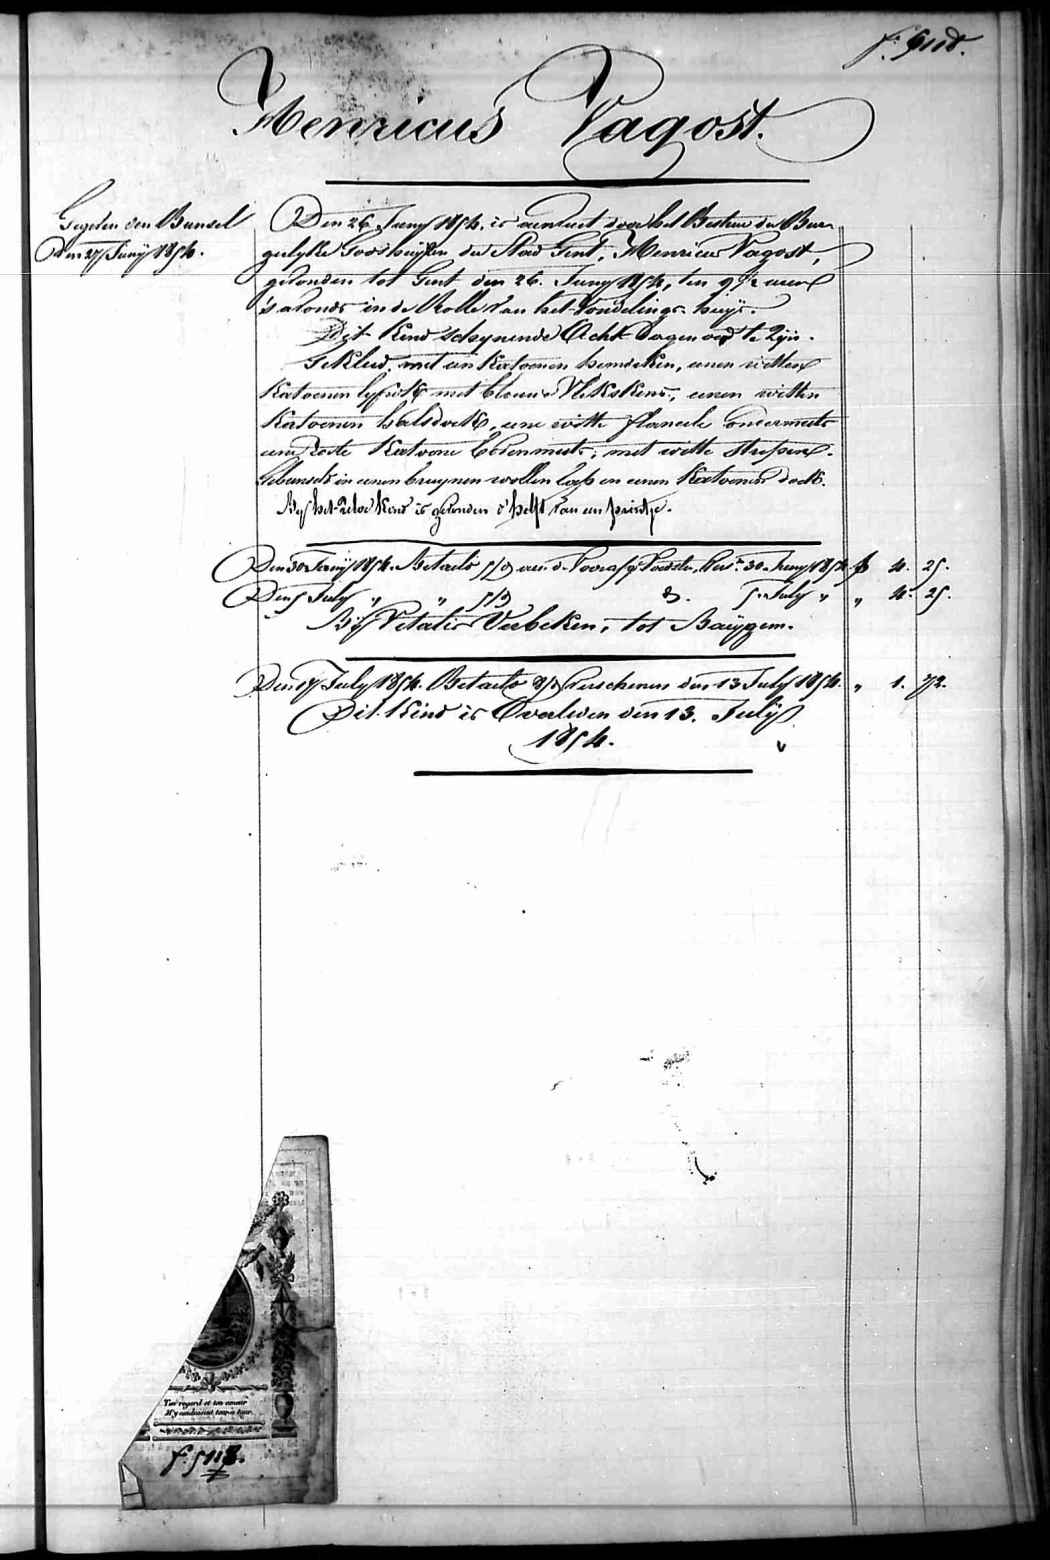 Henricus Vagost.
Gegeven den Bunsel
Den 27 Junij 1854.
Den 26 Juny 1854, is aenveert door het Bestuer der Bur-
gerlyke Godshuyzen der Stad Gent, Henricus Vagost,
gevonden tot Gent den 26. Juny 1854, ten 9 1/2 uren
's avonds in de Rolle van het Vondelings-huys.
Dit Kind schynende Acht dagen oud te Zijn.
Gekleed met een Katoenen hemdeken, eenen witten
Katoenen lyfrok met blauwe Vlekskens, eenen witten
Katoenen halsdoek, eene witte flaneele ondermuts
eene Roode Katoene bovenmuts, met witte strepen.
Gebunselt in eenen bruynen wollen lap en eenen Katoenen doek.
By het Zelve Kind is gevonden d'helft van een printje.
Den 30 Junij 1854. Betaeld aen de Voorafg Voedster, 30 Juny 1854 f 4. 25.
Den 5 July " " 5 July " " 4. 25.
Bij Vitalis Verbeken, tot Baijgem.
Den 17 July 1854. Betaeld verschenen den 13 July 1854. " 1. 72.
Dit Kind is Overleden den 13. July
1854.
Ton regard et ton amour
M'y conduisent tour-à-tour.
f. 5118.